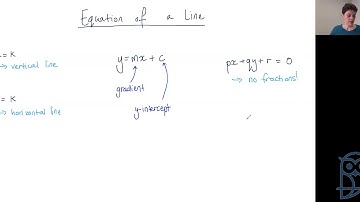 Equation of a Line
= K
→ vertical line
= K
→ horizontal line
y = mx + c
gradient
y-intercept
px + qy + r = 0
→ no fractions!